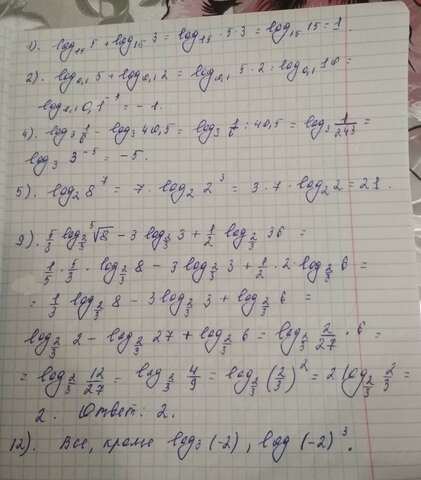 1). log₁₅ 5 + log₁₅ 3 = log₁₅ 5·3 = log₁₅ 15 = 1.
2). log₀,₁ 5 + log₀,₁ 2 = log₀,₁ 5·2 = log₀,₁ 10 =
log₀,₁ 0,1⁻¹ = -1.
4). log₃ 1/6 - log₃ 40,5 = log₃ 1/6 : 40,5 = log₃ 1/243 =
log₃ 3⁻⁵ = -5.
5). log₂ 8⁷ = 7·log₂ 2³ = 3·7·log₂ 2 = 21.
9). 5/3 log_2/3 ⁵√8 - 3 log_2/3 3 + 1/2 log_2/3 36 =
1/5 · 5/3 · log_2/3 8 - 3 log_2/3 3 + 1/2 · 2 · log_2/3 6 =
= 1/3 log_2/3 8 - 3 log_2/3 3 + log_2/3 6 =
log_2/3 2 - log_2/3 27 + log_2/3 6 = log_2/3 2/27 · 6 =
= log_2/3 12/27 = log_2/3 4/9 = log_2/3 (2/3)² = 2 log_2/3 2/3 =
2. Ответ: 2.
12). Все, кроме log₃ (-2), log (-2)³.